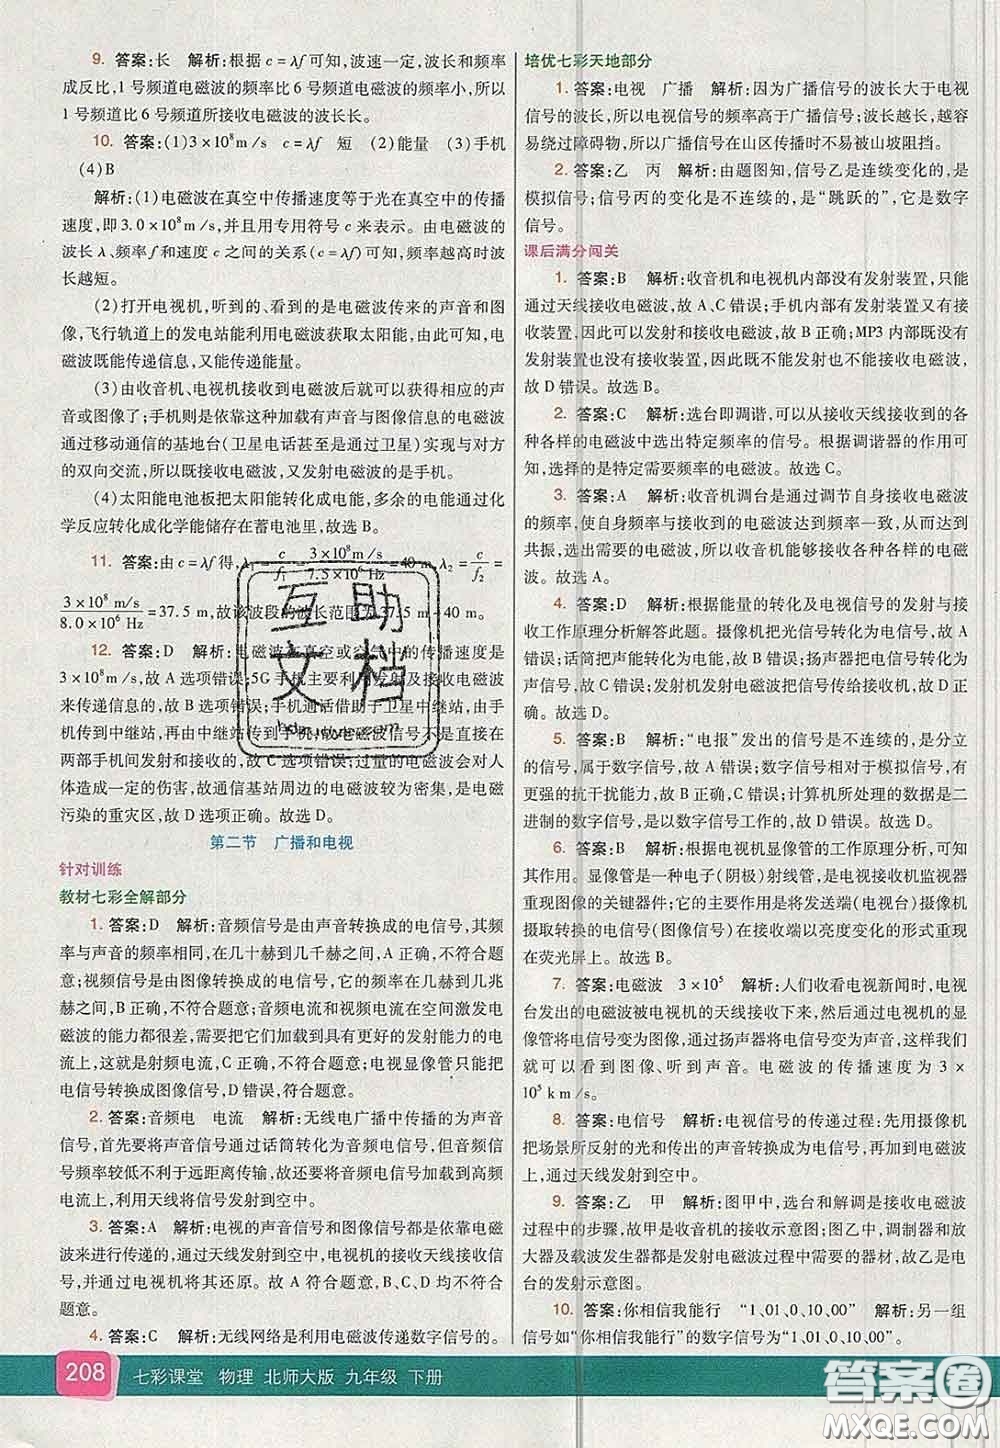 9. 答案:长　解析:根据 c = λf 可知,波速一定,波长和频率
成反比,1 号频道电磁波的频率比 6 号频道的频率小,所以
1 号频道比 6 号频道所接收电磁波的波长长。
10. 答案:(1)3×10⁸ m/s　c=λf　短　(2)能量　(3)手机
(4)B
解析:(1)电磁波在真空中传播速度等于光在真空中的传播
速度,即 3.0×10⁸ m/s,并且用专用符号 c 表示。由电磁波的
波长 λ、频率 f 和速度 c 之间的关系(c=λf)可知,频率越高时波长
越短。
(2)打开电视机,听到的、看到的是电磁波传来的声音和图
像,飞行轨道上的发电站能利用电磁波获取太阳能,由此可知,电
磁波既能传递信息,又能传递能量。
(3)由收音机、电视机接收到电磁波后就可以获得相应的声
音或图像了;手机则是依靠这种加载有声音与图像信息的电磁波
通过移动通信的基地台(卫星电话甚至是通过卫星)实现与对方
的双向交流,所以既接收电磁波,又发射电磁波的是手机。
(4)太阳能电池板把太阳能转化成电能,多余的电能通过化
学反应转化成化学能储存在蓄电池里,故选 B。
11. 答案:由 c=λf 得,λ₁=c/f₁=3×10⁸ m/s/7.5×10⁶ Hz=40 m,λ₂=c/f₂=
3×10⁸ m/s/8.0×10⁶ Hz=37.5 m,故该波段的波长范围为 37.5 m~40 m。
12. 答案:D　解析:电磁波在真空或空气中的传播速度是
3×10⁸ m/s,故 A 选项错误;5G 手机主要利用电磁波
来传递信息的,故 B 选项错误;手机通话借助于卫星中继站,由手
机传到中继站,再由中继站传到手机,故电磁波信号直接在
两部手机间发射和接收的,故 C 选项错误;过量的电磁波会对人
体造成一定的伤害,故通信基站周边的电磁波较为密集,是电磁
污染的重灾区,故 D 选项正确。故选 D。
第二节　广播和电视
针对训练
教材七彩全解部分
1. 答案:D　解析:音频信号是由声音转换成的电信号,其频
率与声音的频率相同,在几十赫到几千赫之间,A 正确,不符合题
意;视频信号是由图像转换成的电信号,它的频率在几赫到几兆
赫之间,B 正确,不符合题意;音频电流和视频电流在空间激发电
磁波的能力都很差,需要把它们加载到具有更好的发射能力的电
流上,这就是射频电流,C 正确,不符合题意;电视显像管只能把
电信号转换成图像信号,D 错误,符合题意。
2. 答案:音频电　电流　解析:无线电广播中传播的为声音
信号,首先要将声音信号通过话筒转化为音频电信号,但音频信
号频率较低不利于远距离传输,故还要将音频电信号加载到高频
电流上,利用天线将信号发射到空中。
3. 答案:A　解析:电视的声音信号和图像信号都是依靠电磁
波来进行传递的,通过天线发射到空中,电视机的接收天线接收信
号,并通过电视机将其还原。故 A 符合题意,B、C、D 均不符合
题意。
4. 答案:C　解析:无线网络是利用电磁波传递数字信号的。
培优七彩天地部分
1. 答案:电视　广播　解析:因为广播信号的波长大于电视
信号的波长,所以电视信号的频率高于广播信号;波长越长,越容
易绕过障碍物,所以广播信号在山区传播时不易被山坡阻挡。
2. 答案:乙　丙　解析:由题图知,信号乙是连续变化的,是
模拟信号;信号丙的变化是不连续的,是“跳跃的”,它是数字
信号。
课后满分闯关
1. 答案:B　解析:收音机和电视机内部没有发射装置,只能
通过天线接收电磁波,故 A、C 错误;手机内部有发射装置又有接
收装置,因此可以发射和接收电磁波,故 B 正确;MP3 内部既没有
发射装置也没有接收装置,因此既不能发射也不能接收电磁波,
故 D 错误。故选 B。
2. 答案:C　解析:选台即调谐,可以从接收天线接收到的各
种各样的电磁波中选出特定频率的信号。根据调谐器的作用可
知,选择的是特定需要频率的电磁波。故选 C。
3. 答案:A　解析:收音机调台是通过调节自身接收电磁波
的频率,使自身接收频率与电磁波达到频率一致,从而达到
共振,选出需要的电磁波,所以收音机能够接收各种各样的电磁
波。故选 A。
4. 答案:D　解析:根据能量的转化及电视信号的发射与
接收工作原理分析解答此题。摄像机把光信号转化为电信号,
故 A 正确;话筒把声能转化为电能,故 B 正确;扬声器把电信号转化为
声信号,故 C 正确;发射机发射电磁波把信号传给接收机,故 D
错误。故选 D。
5. 答案:B　解析:“电报”发出的信号是不连续的,是分立
的信号,属于数字信号,故 A 错误;数字信号相对于模拟信号,有
更强的抗干扰能力,故 B 正确,C 错误;计算机所处理的数据是二
进制的数字信号,是以数字信号工作的,故 D 错误。故选 B。
6. 答案:B　解析:根据电视机显像管的工作原理分析,可知
其作用。显像管是一种电子(阴极)射线管,是电视接收机监视器
重现图像的关键器件,它的主要作用是将发送端(电视台)摄像机
摄取转换的电信号(图像信号)在接收端以亮度变化的形式重现
在荧光屏上。故选 B。
7. 答案:电磁波　3×10⁵　解析:人们收看电视新闻时,电视
台发出的电磁波被电视机的天线接收下来,然后通过电视机的显
像管将电信号变为图像,通过扬声器将电信号变为声音,这样我
们就能看到图像、听到声音。电磁波在真空中的速度为 3 ×
10⁵ km/s。
8. 答案:电信号　解析:电视信号的传递过程:先用摄像机
把场景所反射的光和传出的声音转换成为电信号,加载到电磁波
上,通过天线发射到空中。
9. 答案:乙　甲　解析:图甲中,选台和解调是接收电磁波
过程中的步骤,故甲是收音机的接收示意图;图乙中,调制器和放
大器及载波发生器都是发射电磁波过程中需要的器材,故乙是电
台的发射示意图。
10. 答案:你相信我能行　“1,01,0,10,00”　解析:另一组
信号“你相信我能行”的数字信号为“1,01,0,10,00”
互助
文档
208　七彩课堂　物理　北师大版　九年级　下册
答案圈
MXQE.COM